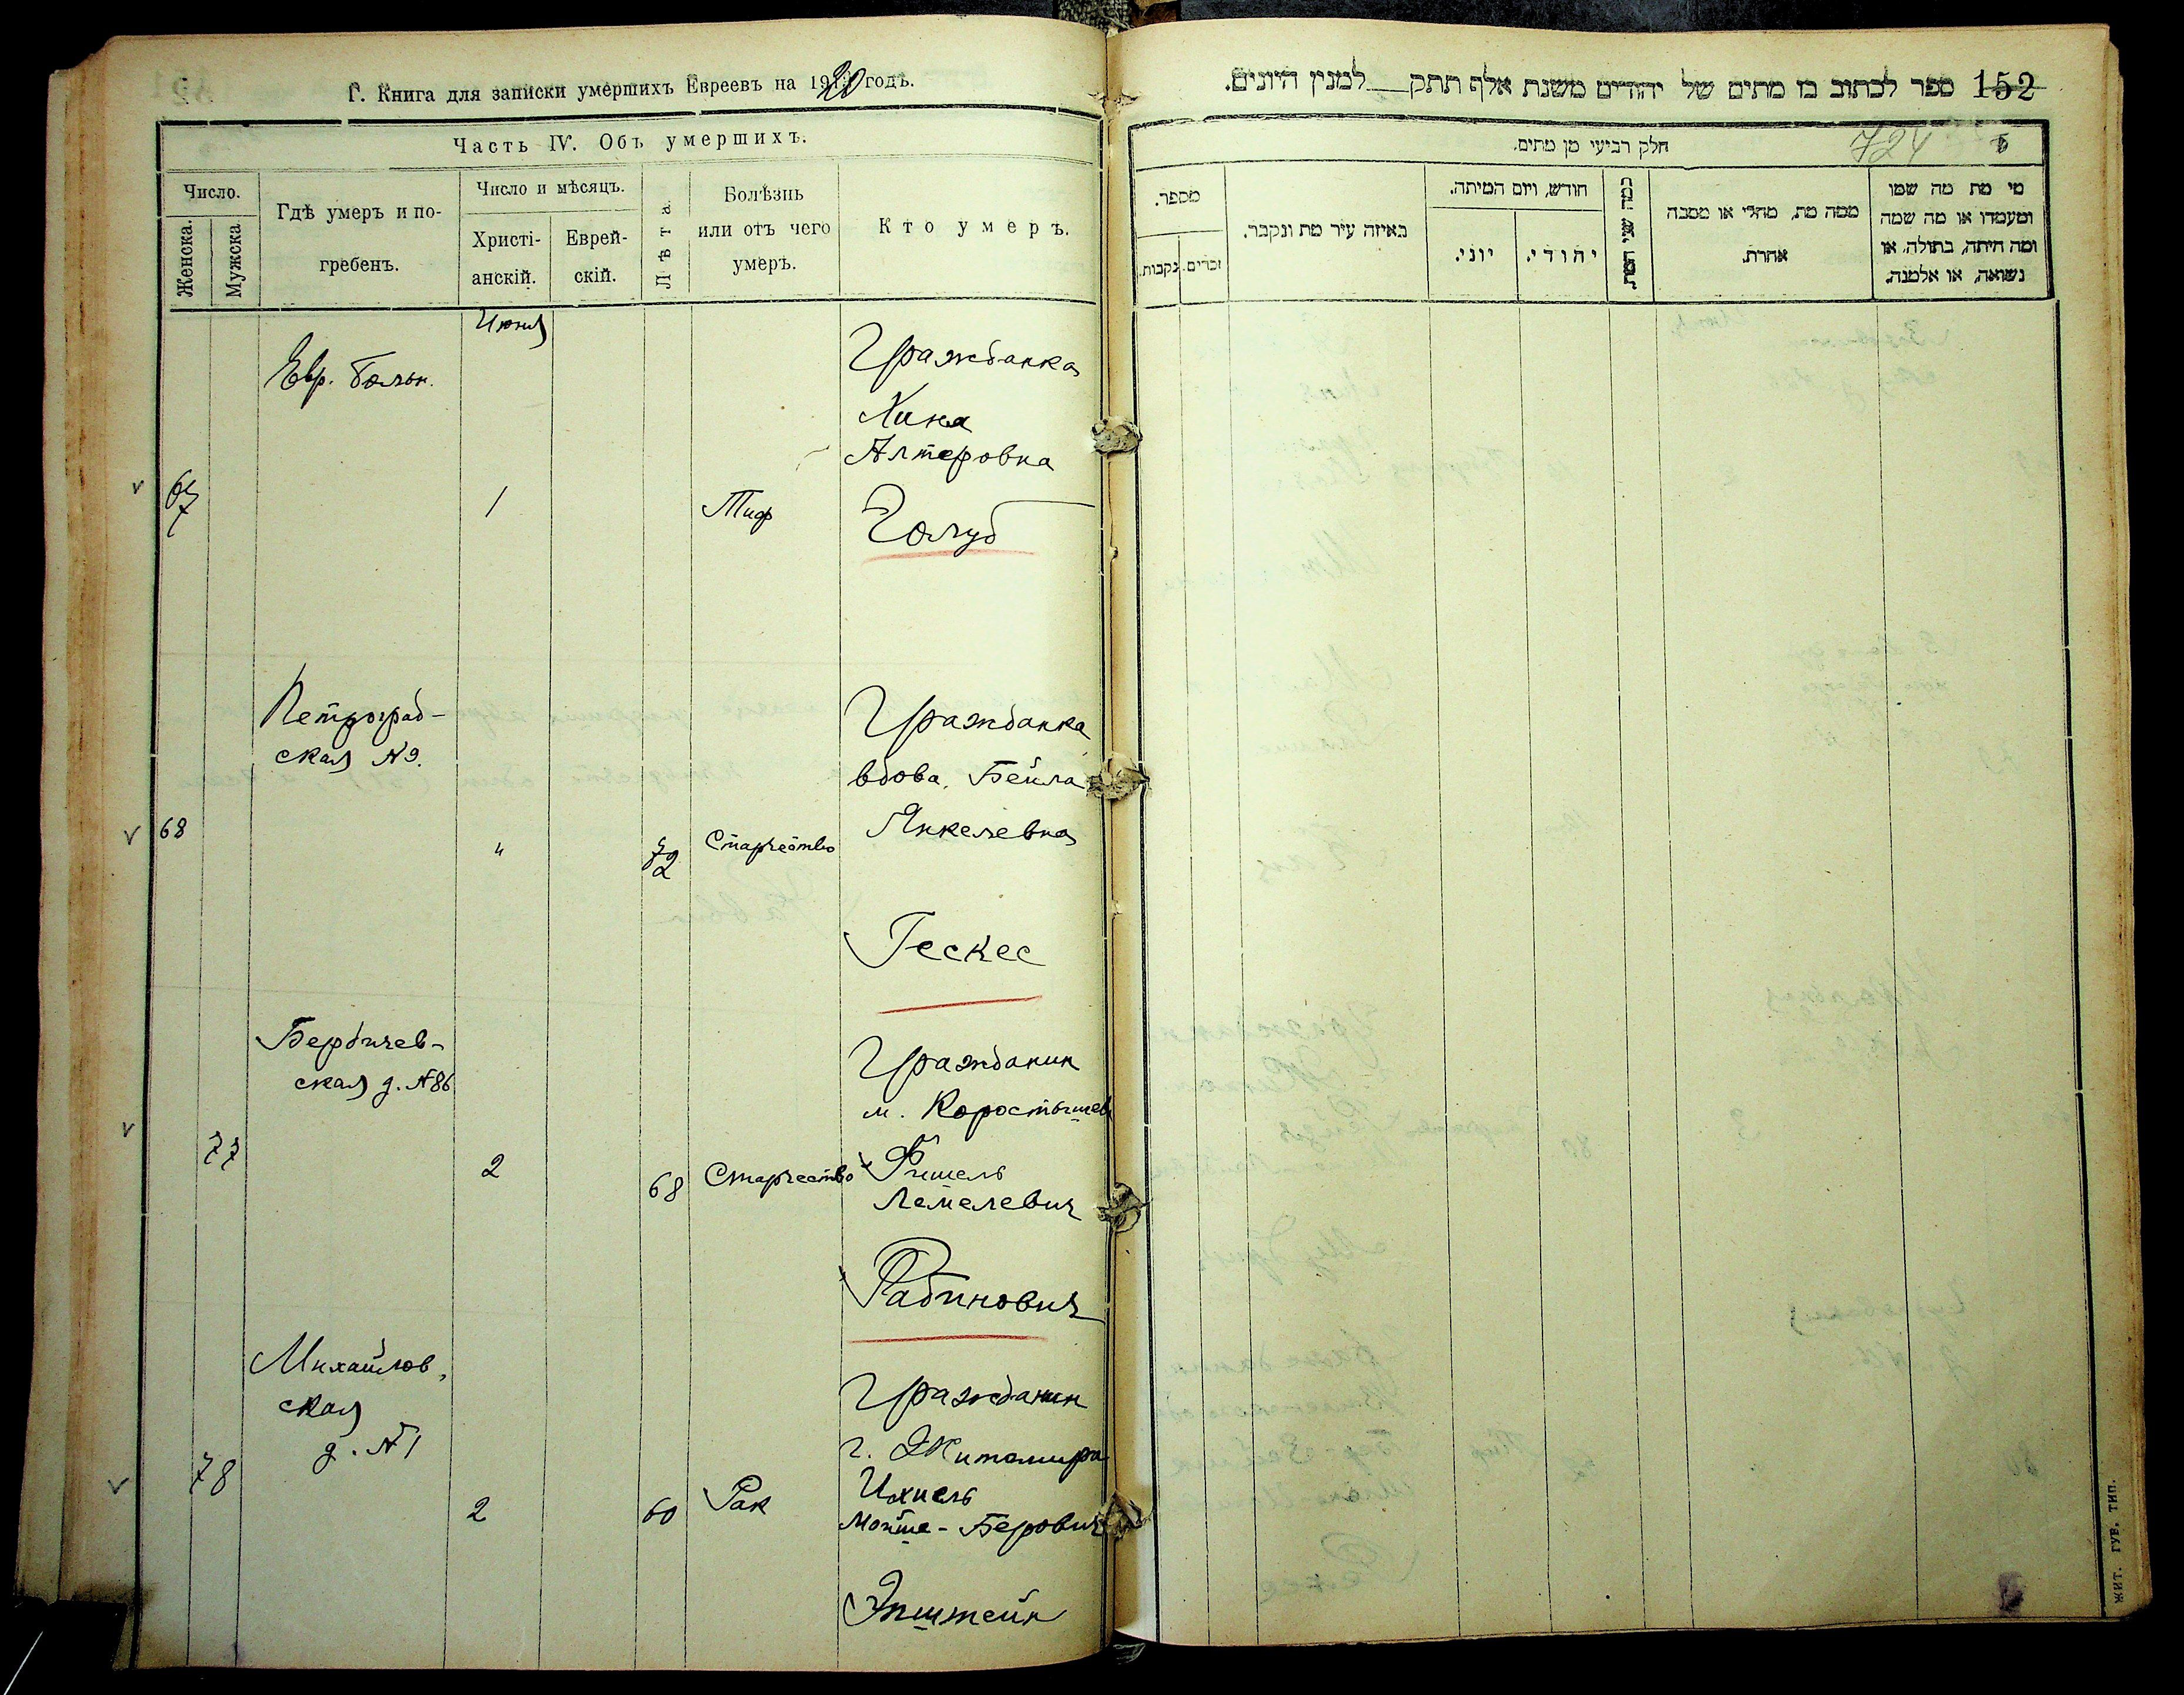 Г. Книга для записки умершихъ Евреевъ на 1920 годъ.
Часть IV. Объ умершихъ.
Число.
Женска.
Мужска.
Гдѣ умеръ и по-
гребенъ.
Число и мѣсяцъ.
Христі-
анскій.
Еврей-
скій.
Лѣта.
Болѣзнь
или отъ чего
умеръ.
Кто умеръ.
Июня
Евр. больн.
Гражданка
Хина
Алтеровна
67
1
Тиф
Голуб
Петроград-
ская №9.
Гражданка
вдова Бейла
Янкелевна
68
"
72
Старчество
Гескес
Бердичев-
ская д. №86
Гражданин
м. Коростышев
77
2
68
Старчество
Фишель
Лемелевич
Рабинович
Михайлов-
ская
д. №1
Гражданин
г. Житомира
78
2
60
Рак
Ихиель
Мойше-Берович
Эпштейн
152 ספר לכתוב בו מתים של יהודים משנת אלף תתק לממנין היונים.
724
חלק רביעי מן מתים.
מספר.
נקבות.
זכרים.
באיזה עיר מת ונקבר.
חודש, ויום המיתה.
יוני.
יהודי.
כמה שני המת
ממה מת, מחלי או מסבה
אחרת.
מי מת מה שמו
ומעמדו או מה שמה
ומה היתה, בתולה, או
נשואה, או אלמנה.
ЖИТ. ГУБ. ТИП.